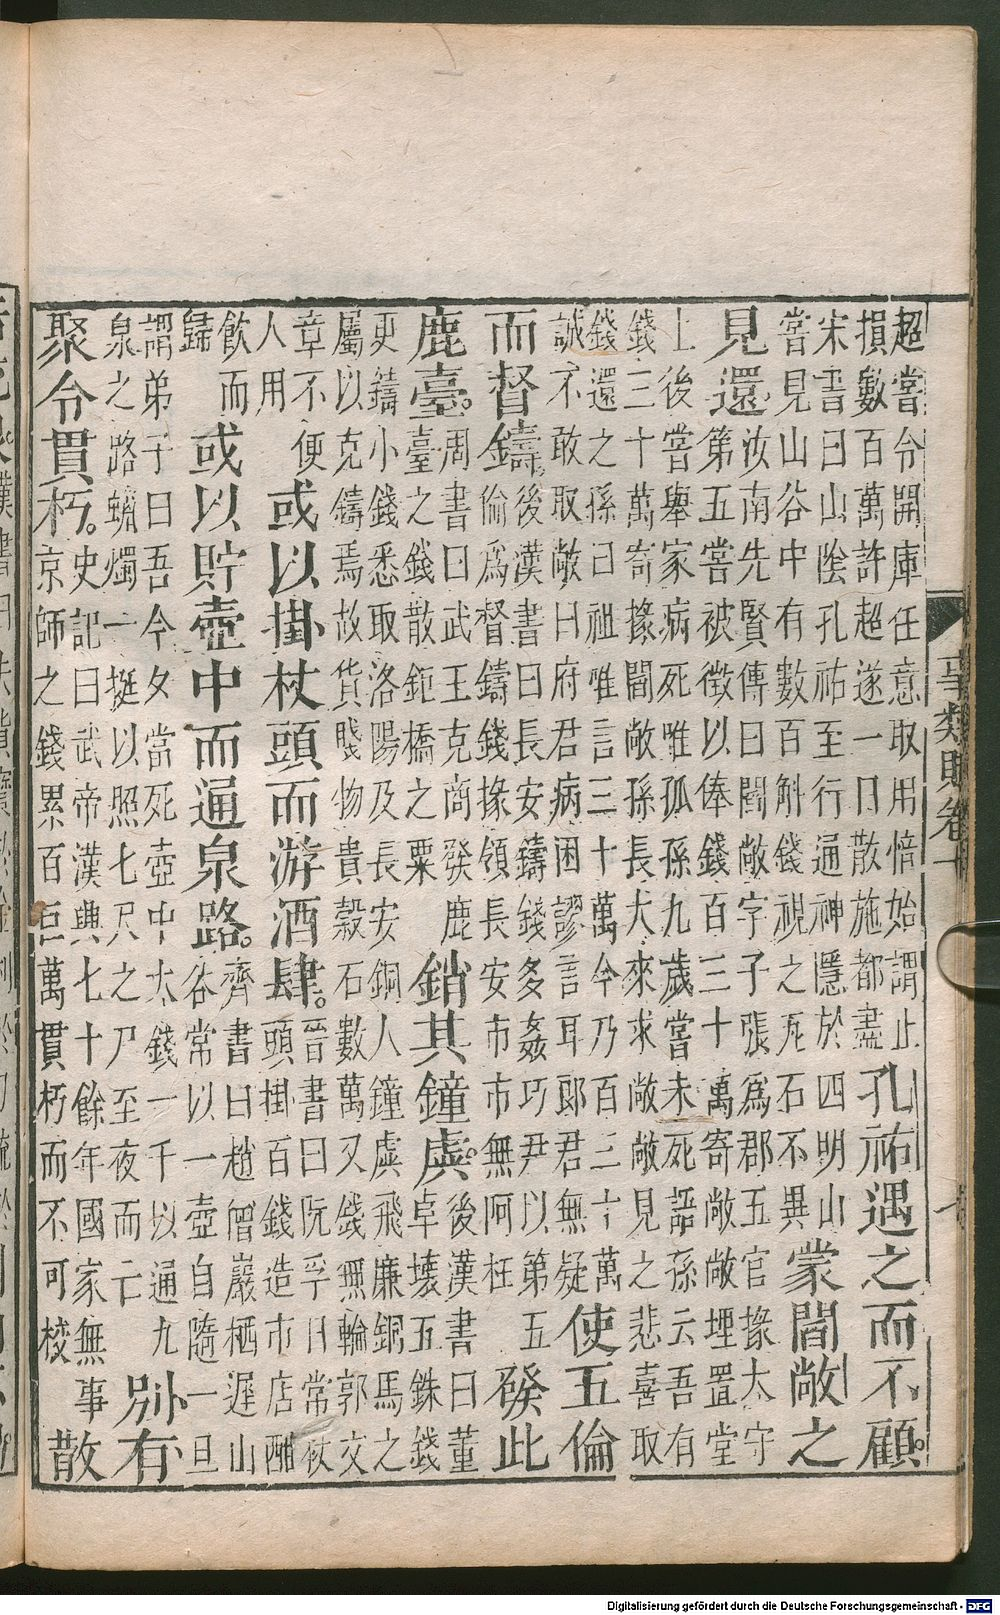 超嘗令開庫任意取用倍始謂止
損數百萬許超遂一日散施都盡
孔祐遇之而不顧。
宋書曰山陰孔祐至行通神隱於四明山
嘗見山谷中有數百斛錢視之瓦石不異
蒙閻敞之
見還
汝南先賢傳曰閻敞字子張爲郡五官掾太守
第五嘗被徵以俸錢百三十萬寄敞敞埋置堂
上後嘗舉家病死唯孤孫九歲嘗未死語孫云吾有
錢三十萬寄掾閻敞孫長大來求敞敞見之悲喜取
錢還之孫曰祖唯言三十萬今乃百三十萬
誠不敢取敞曰府君病困謬言耳郎君無疑
使五倫
而督鑄
後漢書曰長安鑄錢多姦巧尹以第五
倫爲督鑄錢掾領長安市市無阿枉
發此
鹿臺。
周書曰武王克商發鹿
臺之錢散鉅橋之粟
銷其鐘虡。
後漢書曰董
卓壞五銖錢
更鑄小錢悉取洛陽及長安銅人鐘虡飛廉銅馬之
屬以克鑄焉故貨賤物貴穀石數萬又錢無輪郭文
章不便
人用
或以掛杖頭而游酒肆。
晉書曰阮孚日常杖
頭掛百錢造市店酣
飲而
歸
或以貯壺中而通泉路。
齊書曰趙僧巖栖遲山
谷常以一壺自隨一旦
謂弟子曰吾今夕當死壺中大錢一千以通九
泉之路蠟燭一挺以照七尺之尸至夜而亡
別有
聚令貫朽。
史記曰武帝漢興七十餘年國家無事
京師之錢累百巨萬貫朽而不可校
散
事類賦卷十
Digitalisierung gefördert durch die Deutsche Forschungsgemeinschaft - DFG